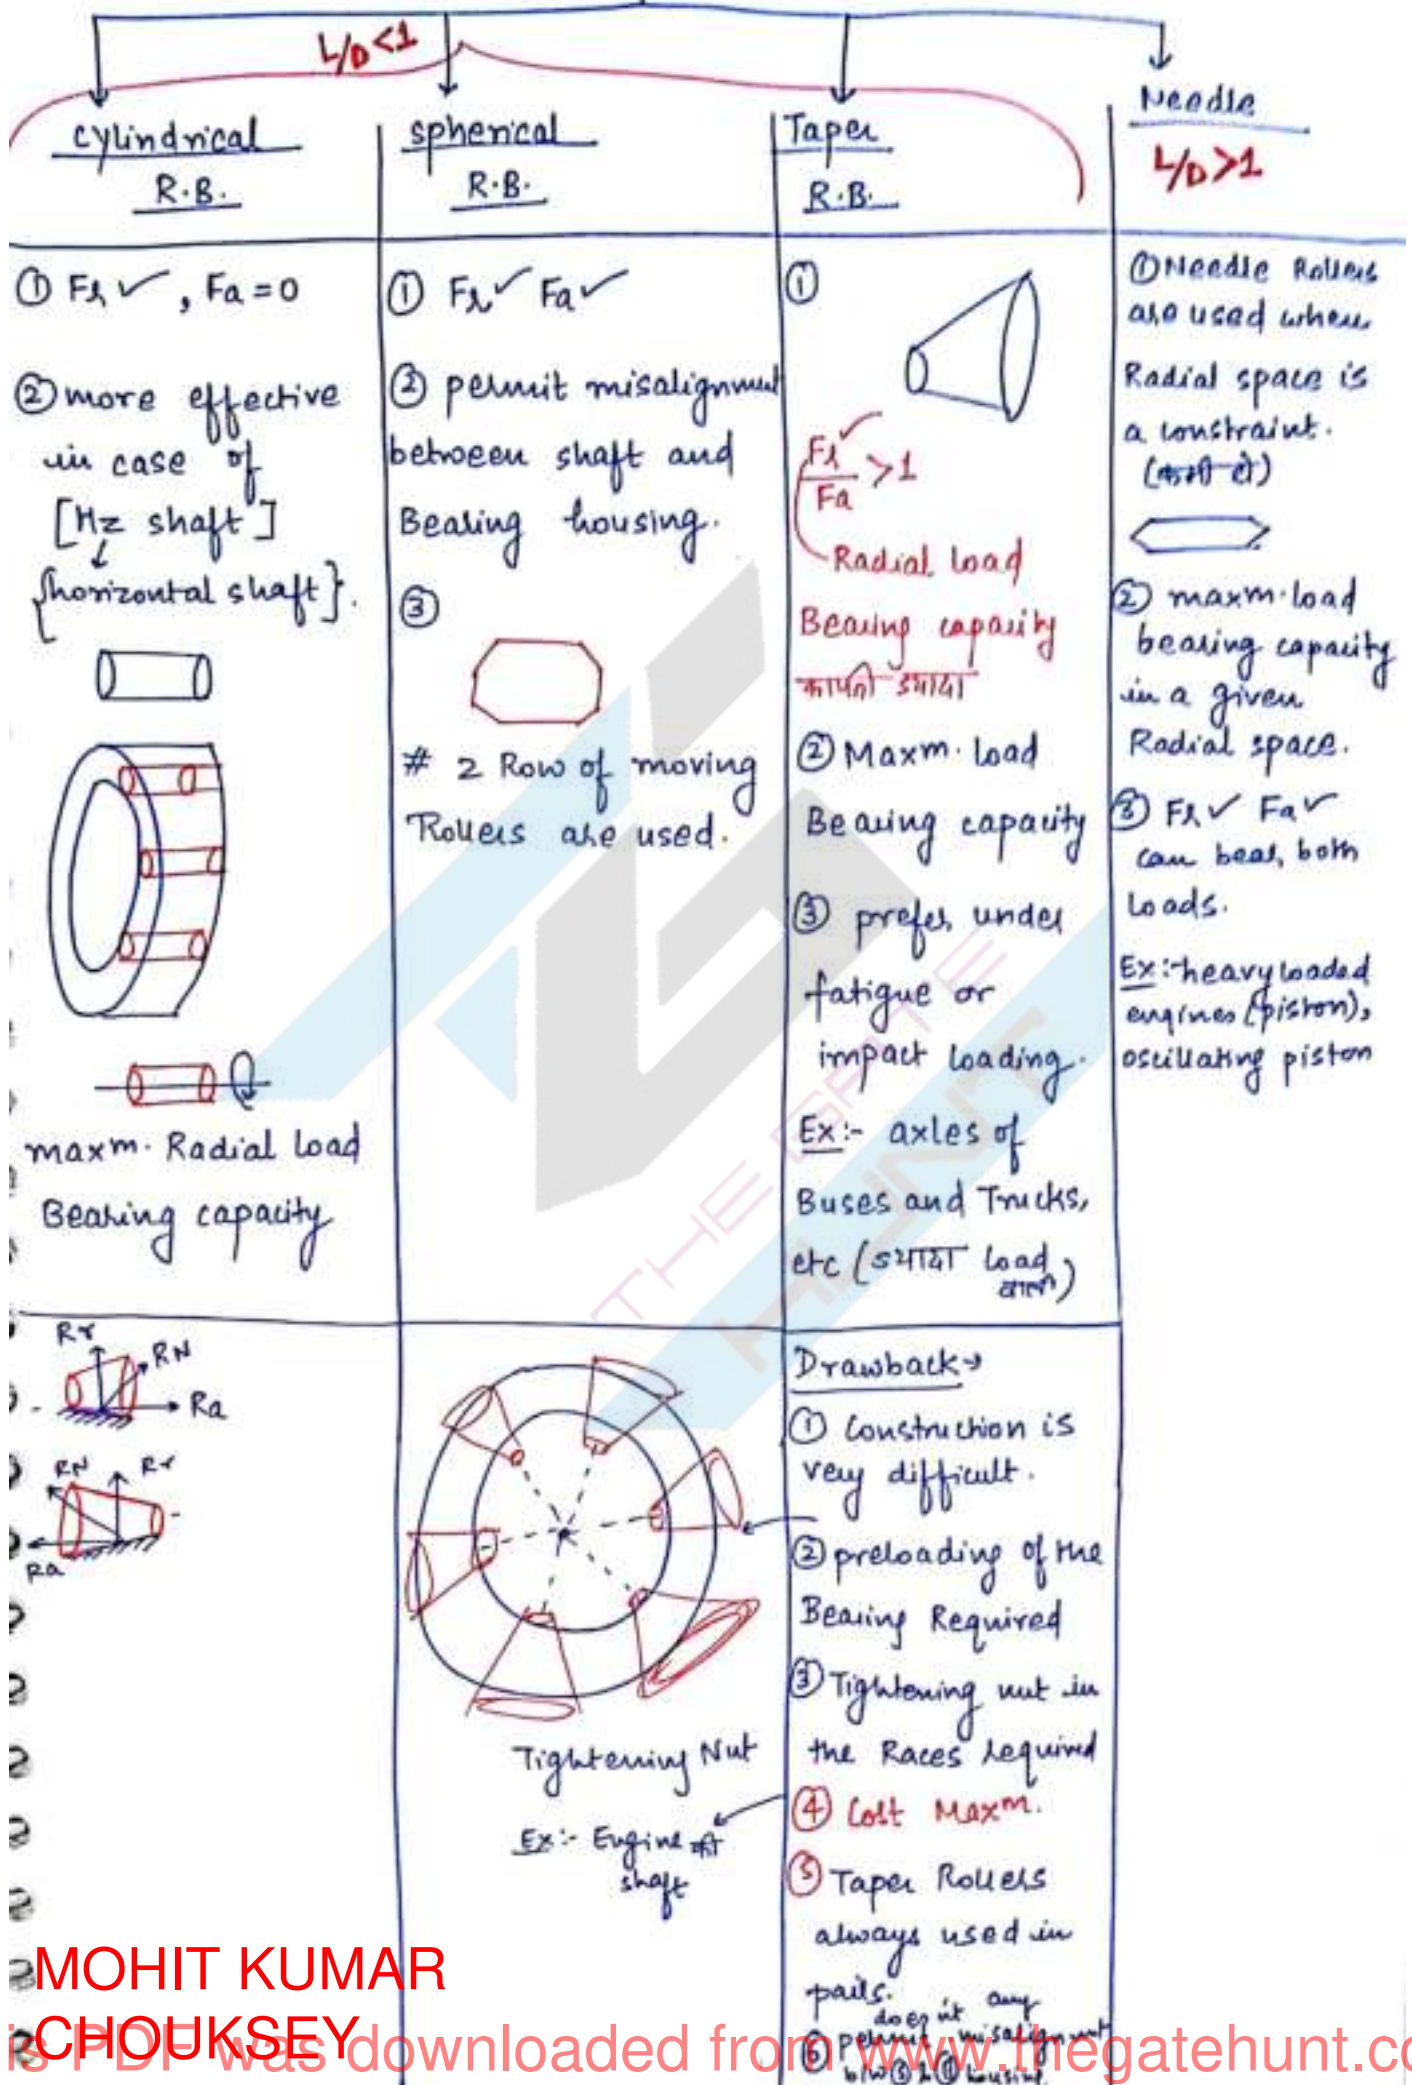 L/D<1
Cylindrical
R.B.
① Fr✓, Fa=0
② more effective
in case of
[Hz shaft]
{horizontal shaft}.
maxm. Radial load
Bearing capacity
Rr
RN
Ra
RN
Rr
Ra
spherical
R.B.
① Fr✓ Fa✓
② permit misalignment
between shaft and
Bearing housing.
③
# 2 Row of moving
Rollers are used.
Tightening Nut
Ex:- Engine की
shaft
Taper
R.B.
①
Fr✓
Fa
>1
Radial load
Bearing capacity
काफी ज्यादा
② Maxm. load
Bearing capacity
③ prefer under
fatigue or
impact loading.
Ex:- axles of
Buses and Trucks,
etc (ज्यादा load
वाले)
Drawback→
① Construction is
very difficult.
② preloading of the
Bearing Required
③ Tightening nut in
the Races required
④ Cost Maxm.
⑤ Taper Rollers
always used in
pairs.
doesn't any
⑥ permit misalignment
b/w Ⓢ & Ⓑ housing
Needle
L/D>1
① Needle Rollers
are used when
Radial space is
a constraint.
② maxm. load
bearing capacity
in a given
Radial space.
③ Fr✓ Fa✓
can bear both
loads.
Ex:- heavy loaded
engines (piston),
oscillating piston
THE GATE
HUNT
MOHIT KUMAR
CHOUKSEY
is PDF was downloaded from www.thegatehunt.co